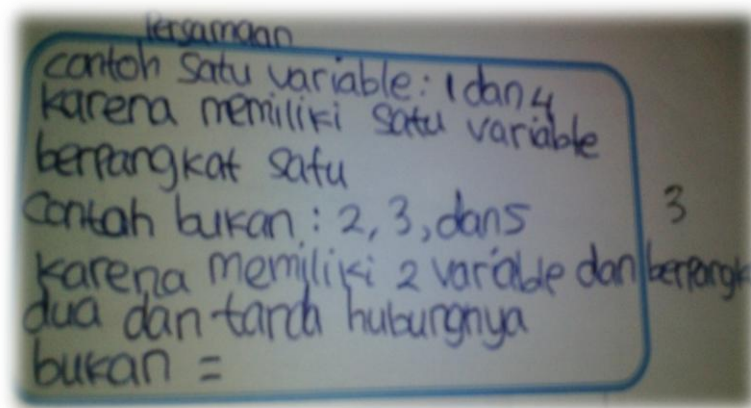 Persamaan
contoh satu variable: 1 dan 4
karena memiliki satu variable
berpangkat satu
Contoh bukan: 2, 3, dan 5
3
karena memiliki 2 variable dan berpangk
dua dan tanda hubungnya
bukan =